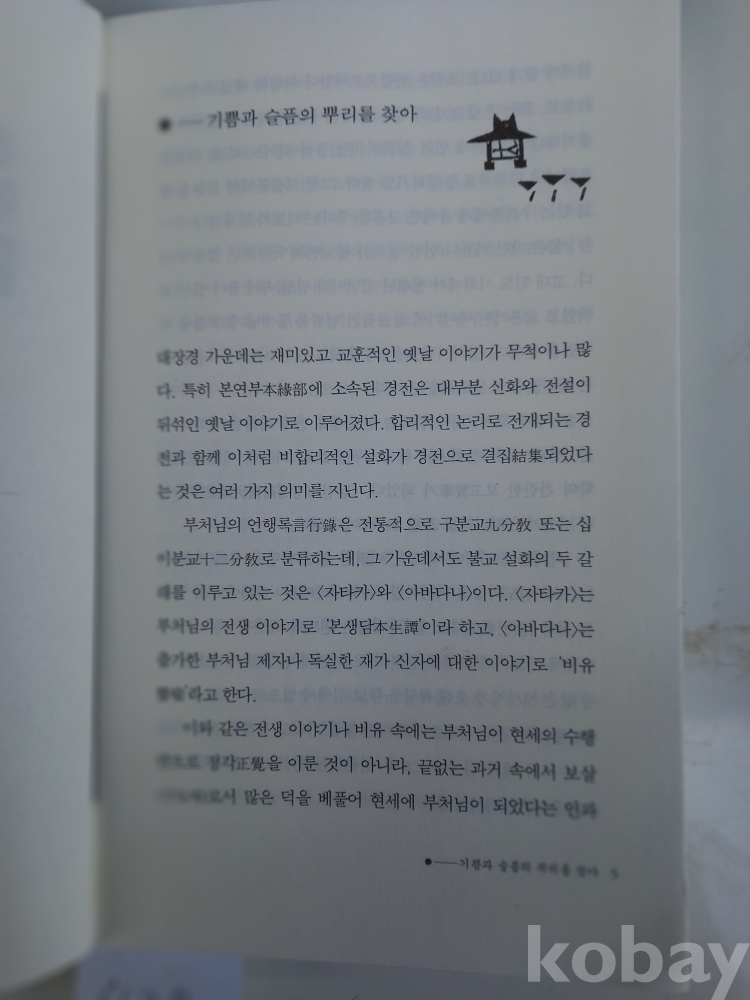 기쁨과 슬픔의 뿌리를 찾아
대장경 가운데는 재미있고 교훈적인 옛날 이야기가 무척이나 많
다. 특히 본연부本緣部에 소속된 경전은 대부분 신화와 전설이
뒤섞인 옛날 이야기로 이루어졌다. 합리적인 논리로 전개되는 경
전과 함께 이처럼 비합리적인 설화가 경전으로 결집結集되었다
는 것은 여러 가지 의미를 지닌다.
부처님의 언행록言行錄은 전통적으로 구분교九分敎 또는 십
이분교十二分敎로 분류하는데, 그 가운데서도 불교 설화의 두 갈
래를 이루고 있는 것은 〈자타카〉와 〈아바다나〉이다. 〈자타카〉는
부처님의 전생 이야기로 '본생담本生譚'이라 하고, 〈아바다나〉는
출가한 부처님 제자나 독실한 재가 신자에 대한 이야기로 '비유
라고 한다.
이와 같은 전생 이야기나 비유 속에는 부처님이 현세의 수행
으로 정각正覺을 이룬 것이 아니라, 끝없는 과거 속에서 보살
로서 많은 덕을 베풀어 현세에 부처님이 되었다는 인과
기쁨과 슬픔의 뿌리를 찾아
kobay